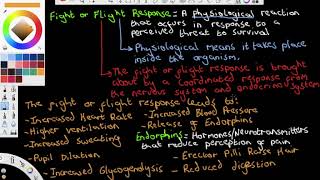 Fight or Flight Response = A Physiological reaction
that occurs in response to a
perceived threat to survival
Physiological means it takes place
inside the organism.
The fight or flight response is brought
about by a coordinated response from
the nervous system and endocrine system
The fight or flight response leads to:
-Increased Heart Rate - Increased Blood Pressure
-Higher ventilation - Release of Endorphins
-Increased Sweating Endorphins = Hormones/Neurotransmitters
that reduce perception of pain
-Pupil Dilation - Erector Pilli Raise Hair
-Increased Glycogenolysis - Reduced digestion